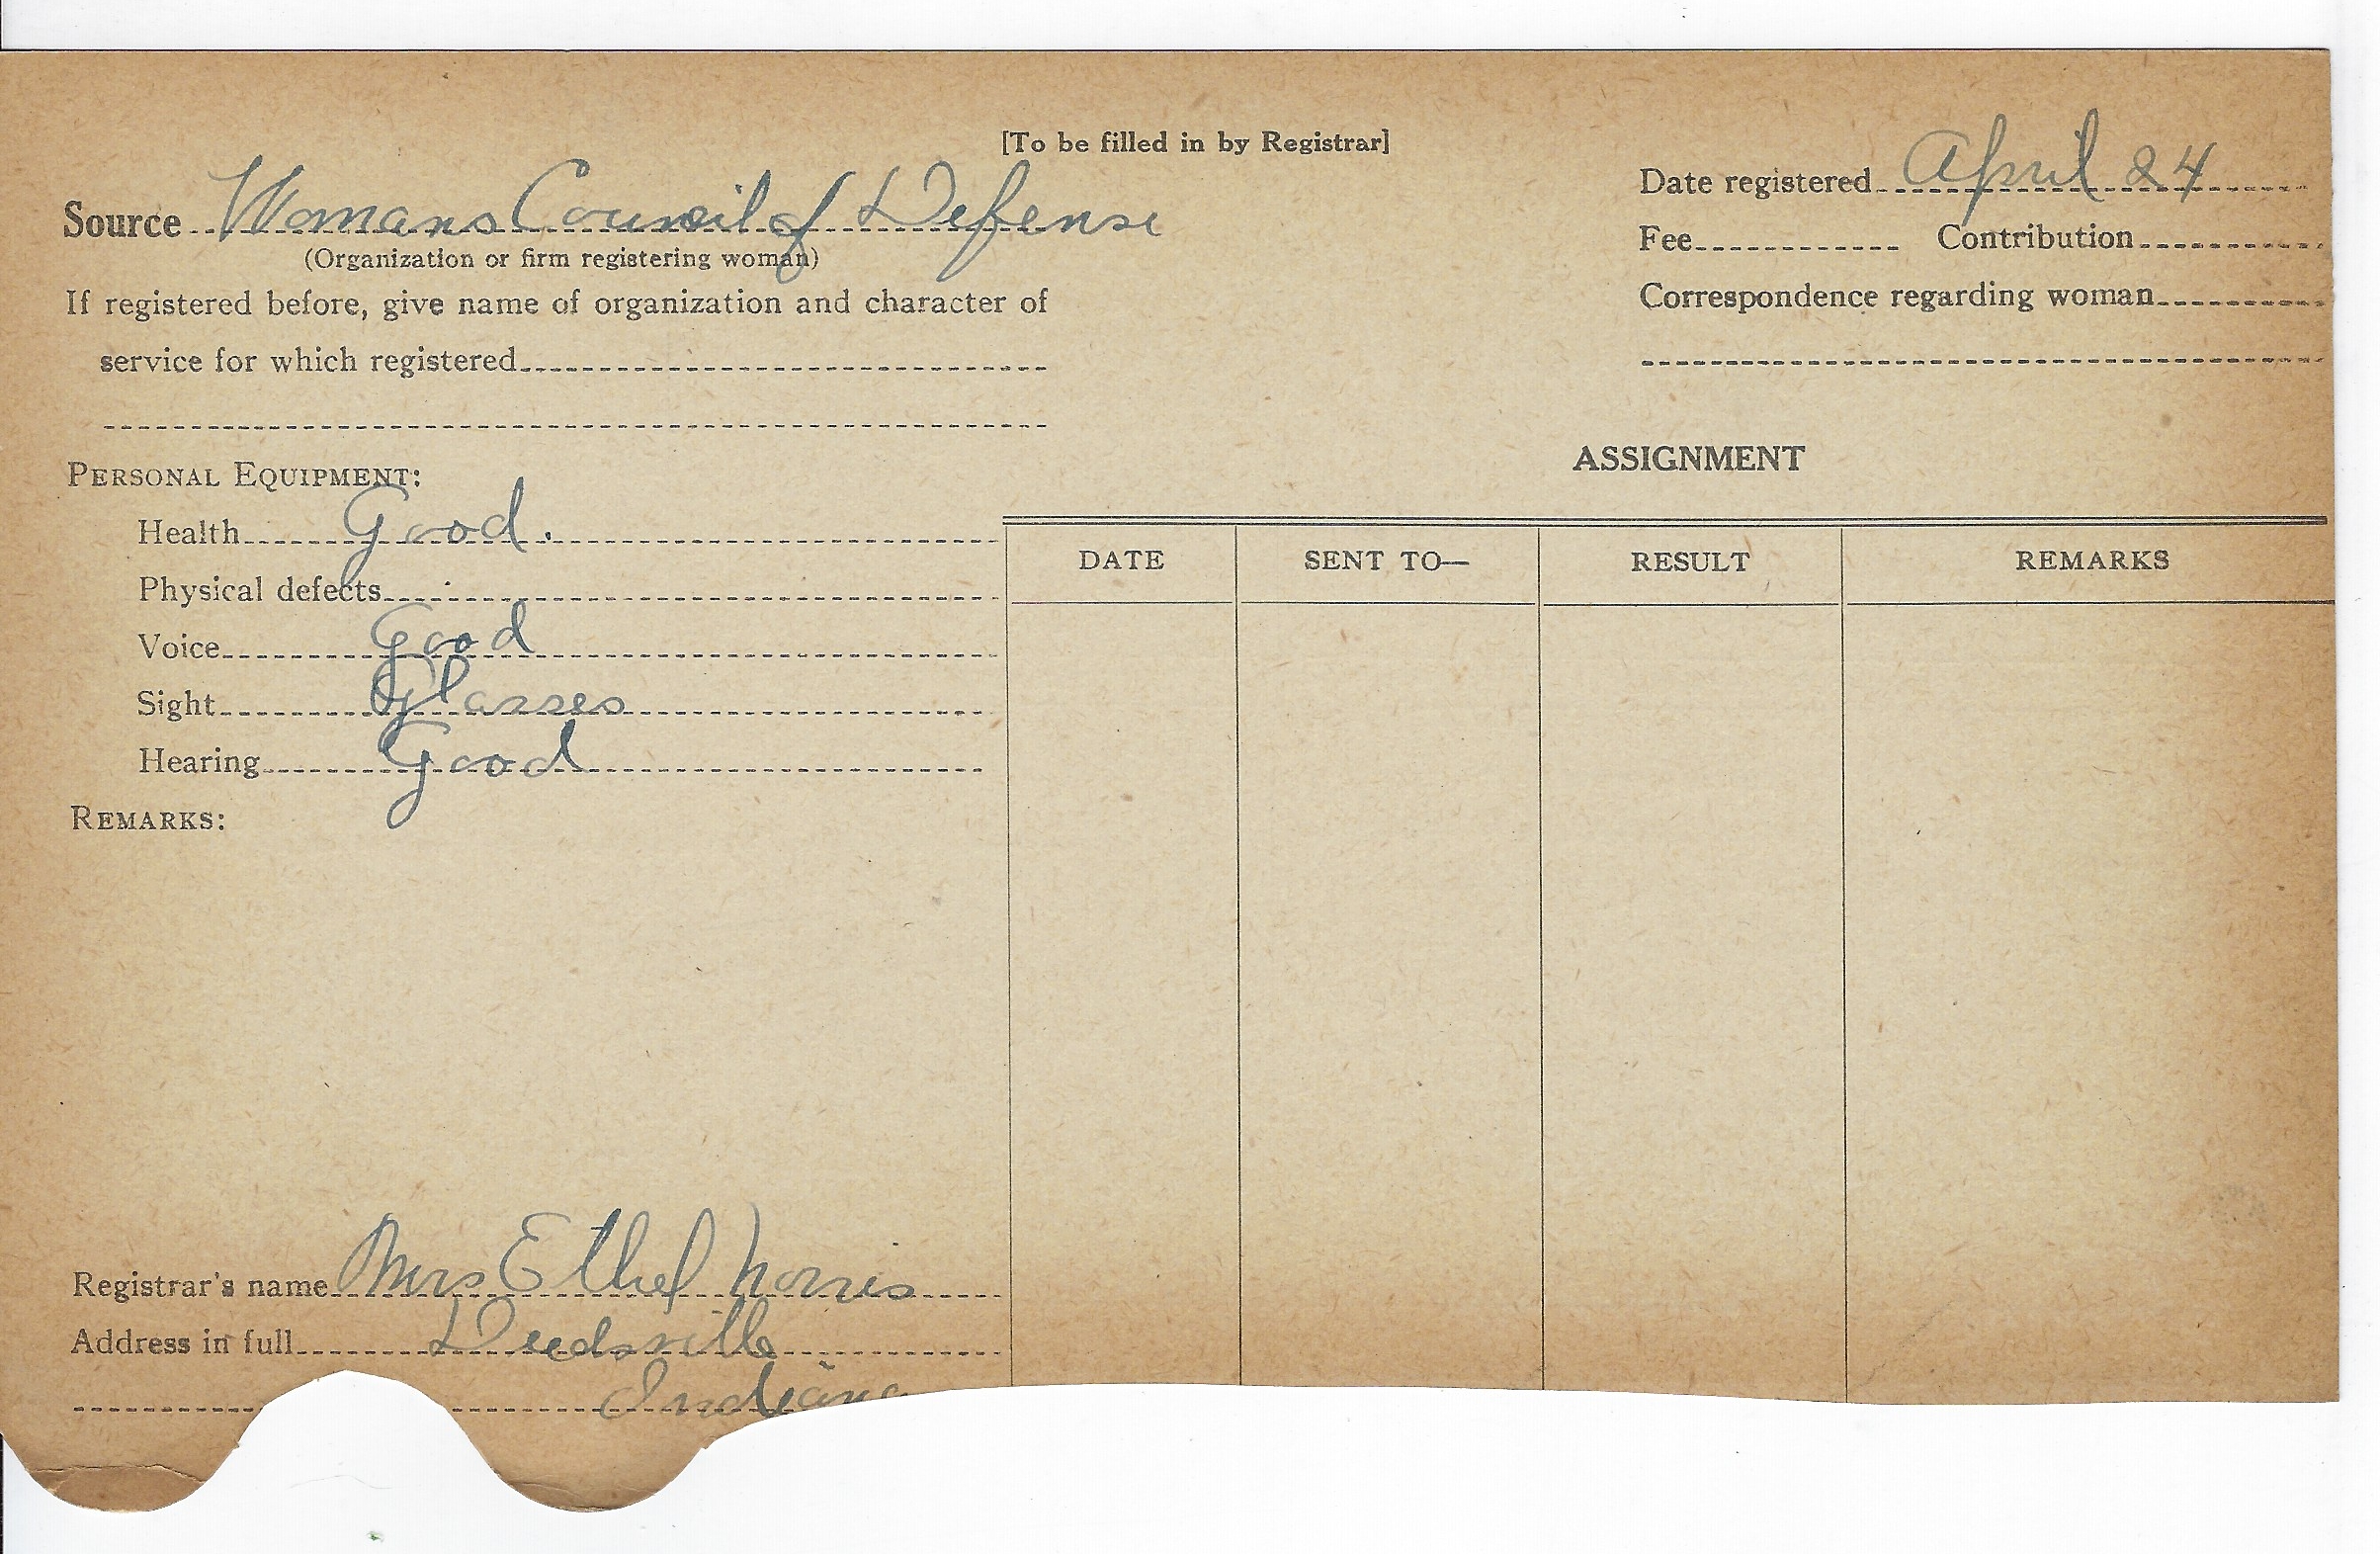 [To be filled in by Registrar]
Source Womans Council of Defense
(Organization or firm registering woman)
If registered before, give name of organization and character of
service for which registered
Date registered April 24
Fee Contribution
Correspondence regarding woman
PERSONAL EQUIPMENT:
Health Good.
Physical defects
Voice Good
Sight Glasses
Hearing Good
REMARKS:
Registrar's name Mrs Ethel Norris
Address in full Deedsville
Indiana
ASSIGNMENT
DATE SENT TO— RESULT REMARKS